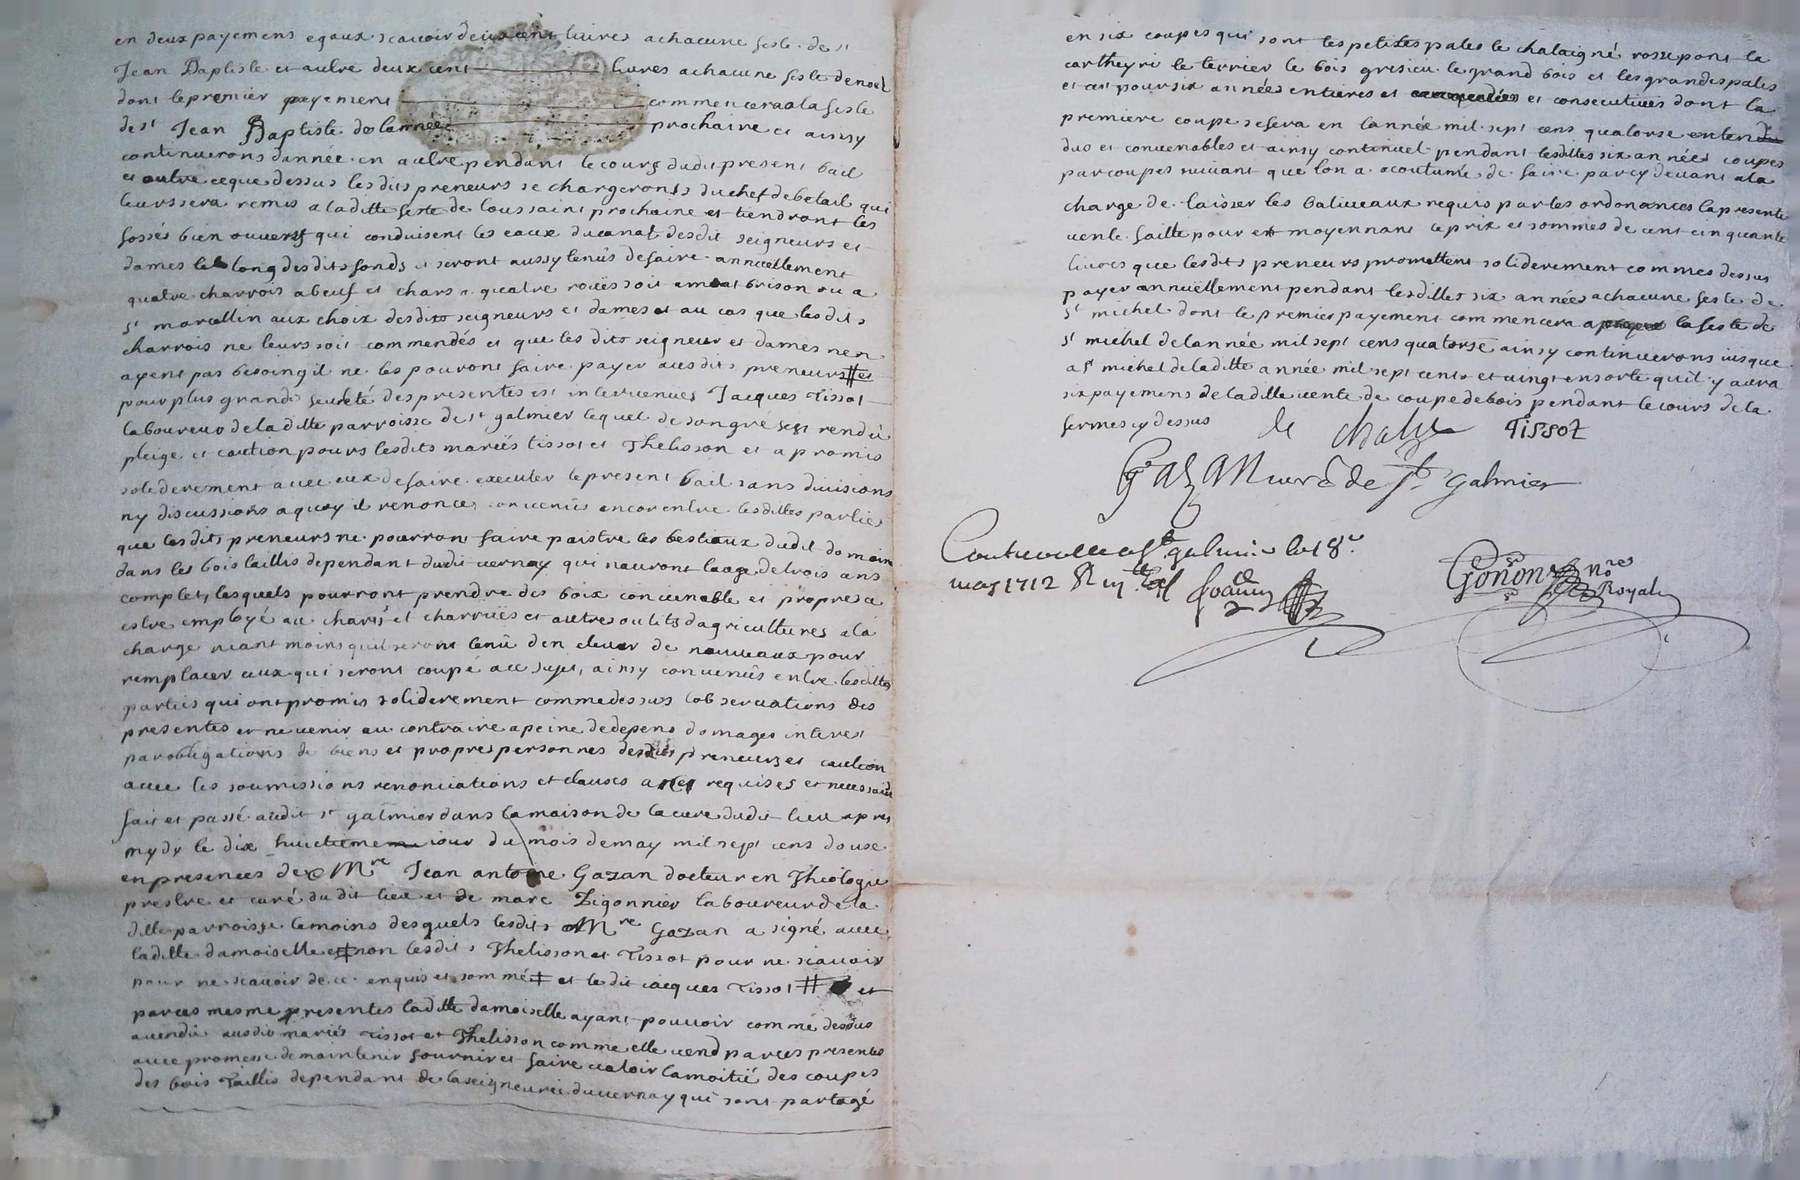 en deux payemens egaux scavoir deux cent livres a chacune feste de st
Jean Baptiste et autre deux cent livres a chacune feste de noel
dont le premier payement commencera a la feste
de st Jean Baptiste de lannée prochaine et ainsy
continuerons dannée en autre pendant le cours dudit present bail
et outre ce que dessus lesdits preneurs se chargeronts du chef de betail qui
leurs sera remis a laditte feste de toussaint prochaine et tiendront les
fossés bien ouverts qui conduisent les eaux du canal desdit seigneurs et
dames le long desdits fonds et seront aussy tenûs de faire annuëllement
quatre charrois a beuf et chars a quatre roües soit a montbrison ou a
st marcellin aux choix desdits seigneurs et dames et au cas que lesdits
charrois ne leurs soit commendés et que les dits seigneur et dames nen
ayent pas besoing il ne les pouront faire payer ausdits preneurs # et
pour plus grande seureté des presentes est intervenue Jacques Tissot
laboureur de laditte parroisse de st galmier lequel de son gré sest rendû
pleige et caution pours lesdits mariés tissot et Thelisson et a promis
soliderement avec eux de faire executer le present bail sans divisions
ny discussions a quoy il renonce, convenûe encor entre lesdittes parties
que lesdits preneurs ne pourront faire paistre les bestiaux dudit domaine
dans les bois taillis dependant dudit vernay qui nauront laage de trois ans
complet, lesquels pourront prendre des boix convenable et propres a
estre employé au chars et charrües et autres outits dagricultures a la
charge neant moins quil seront tenû den elever de nouveaux pour
remplacer ceux qui seront coupé a ce sujet, ainsy convenûes entre lesdittes
parties qui ont promis soliderement comme dessus lobservations des
presentes et ne venir au contraire a peine de depens domages interest
par obligations de biens et propres personnes desdits preneurs et caution
avec les soumissions renonciations et clauses a ce requises et necessaire
fait et passé audit st galmier dans la maison de la cure dudit lieu apres
mydy le dix huictieme jour du mois de may mil sept cens douse
en presences de Mre Jean antoine Gazan docteur en Theologie
prestre et curé du dit lieu et de marc Zigonnier laboureur de la
ditte parroisse temoins desquels lesdits Mre Gazan a signé avec
laditte damoiselle et non lesdits Thelisson et Tissot pour ne scavoir
pour ne scavoir de ce enquis et sommé # et le dit jacques Tissot # et
par ces mesme presentes laditte damoiselle ayant pouvoir comme dessus
a vendû ausdit mariés Tissot et Thelisson comme elle vend par ces presentes
avec promesse de maintenir fournir et faire valoir la moitié des coupes
des bois Taillis dependant de la seigneurie du vernay qui sont partagé
en six coupes qui sont les petites pales le chataigné rossepont le
cartheyri le terrier le bois grisieu le grand bois et les grandes pales
et ce pour six années entieres et et consecutives dont la
premiere coupe se fera en lannée mil sept cens quatorse en tems
dus et convenables et ainsy continuel pendant lesdittes six années coupes
par coupes suivant que lon a acoutumé de faire par cy devant a la
charge de laisser les baliveaux requis par les ordonances la presente
vente faitte pour et moyennant le prix et sommes de cent cinquante
livres que lesdits preneurs promettent soliderement comme dessus
payer annuëllement pendant lesdittes six années a chacune feste de
st michel dont le premier payement commencera a la feste de
st michel de lannée mil sept cens quatorse ainsy continuerons jusque
a st michel de laditte année mil sept cents et vingt en sorte quil y aura
six payemens de laditte vente de coupe de bois pendant le cours de la
fermes cy dessus
de Chalus Tissot
Gazan curé de st galmier
Controllé a st galmier le 18e
may 1712
Gonon nore
Royal